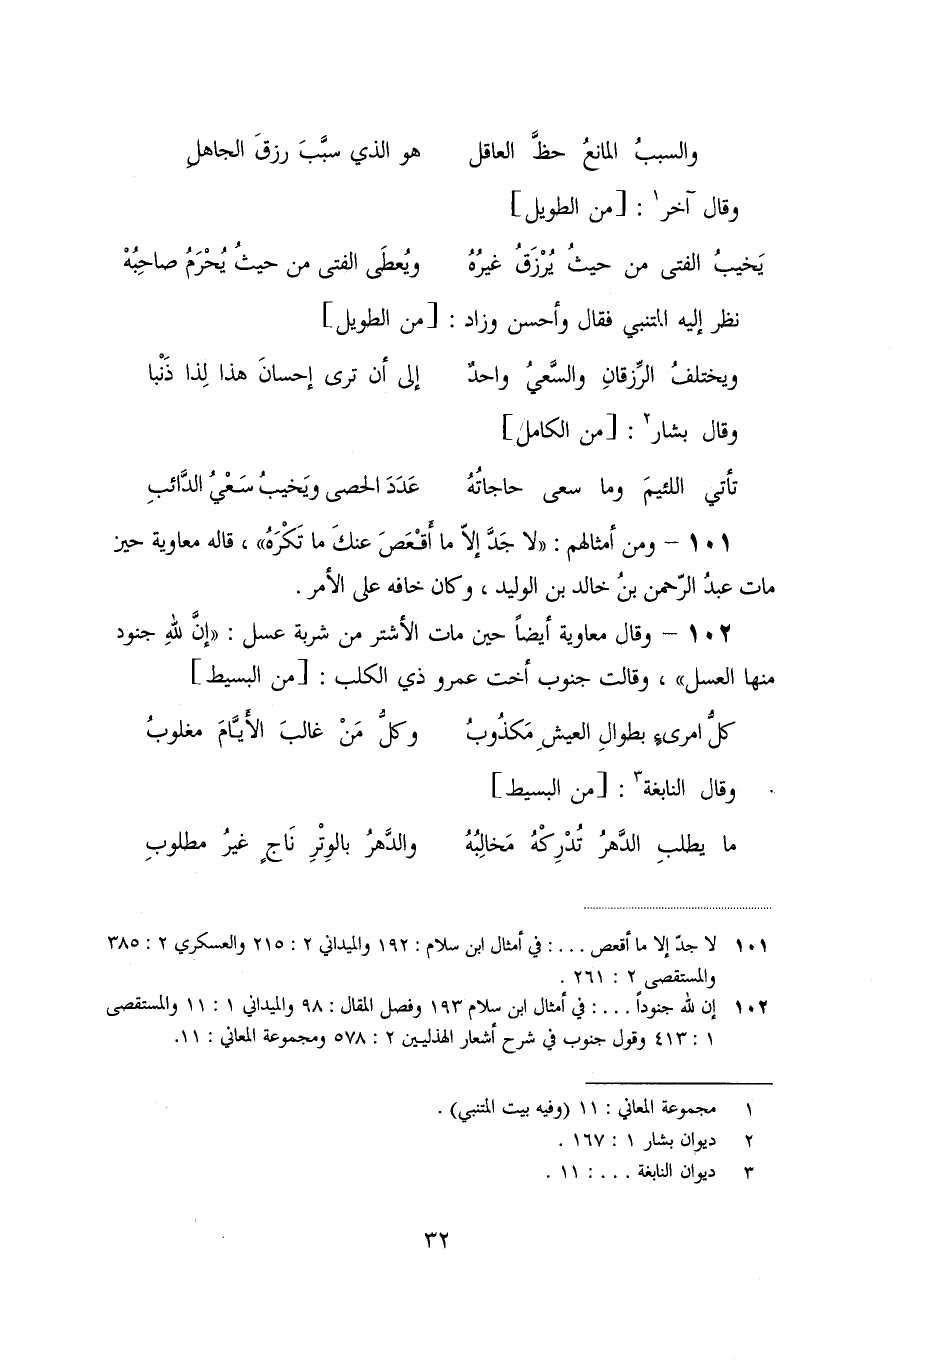 والسببُ المانعُ حظَّ العاقل هو الذي سبَّبَ رزقَ الجاهلِ
وقال آخر١ : [من الطويل]
يَخيبُ الفتى من حيثُ يُرْزَقُ غيرُهُ ويُعطَى الفتى من حيثُ يُحْرَمُ صاحِبُهْ
نظر إليه المتنبي فقال وأحسن وزاد : [من الطويل]
ويختلفُ الرِّزقانِ والسَّعيُ واحدٌ إلى أن ترى إحسانَ هذا لِذا ذَنْبا
وقال بشار٢ : [من الكامل]
تأتي اللئيمَ وما سعى حاجاتُهُ عَدَدَ الحصى ويَخيبُ سَعْيُ الدَّائبِ
١٠١ – ومن أمثالهم : «لا جَدَّ إلاّ ما أَقْعَصَ عنكَ ما تَكْرَهُ» ، قاله معاوية حين
مات عبدُ الرّحمن بنُ خالد بن الوليد ، وكان خافه على الأمر .
١٠٢ – وقال معاوية أيضاً حين مات الأشتر من شربة عسل : «إنَّ للهِ جنود
منها العسل» ، وقالت جنوب أخت عمرو ذي الكلب : [من البسيط]
كلُّ امرىءٍ بطوالِ العيشِ مَكذُوبُ وكلُّ مَنْ غالبَ الأيَّامَ مغلوبُ
وقال النابغة٣ : [من البسيط]
ما يطلبِ الدَّهرُ تُدْرِكْهُ مَخالِبُهُ والدَّهرُ بالوِتْرِ نَاجٍ غيرُ مطلوبِ
١٠١ لا جدّ إلا ما أقعص ... : في أمثال ابن سلام : ١٩٢ والميداني ٢ : ٢١٥ والعسكري ٢ : ٣٨٥
والمستقصى ٢ : ٢٦١ .
١٠٢ إن لله جنوداً ... : في أمثال ابن سلام ١٩٣ وفصل المقال : ٩٨ والميداني ١ : ١١ والمستقصى
١ : ٤١٣ وقول جنوب في شرح أشعار الهذليين ٢ : ٥٧٨ ومجموعة المعاني : ١١.
١ مجموعة المعاني : ١١ (وفيه بيت المتنبي) .
٢ ديوان بشار ١ : ١٦٧ .
٣ ديوان النابغة ... : ١١ .
٣٢